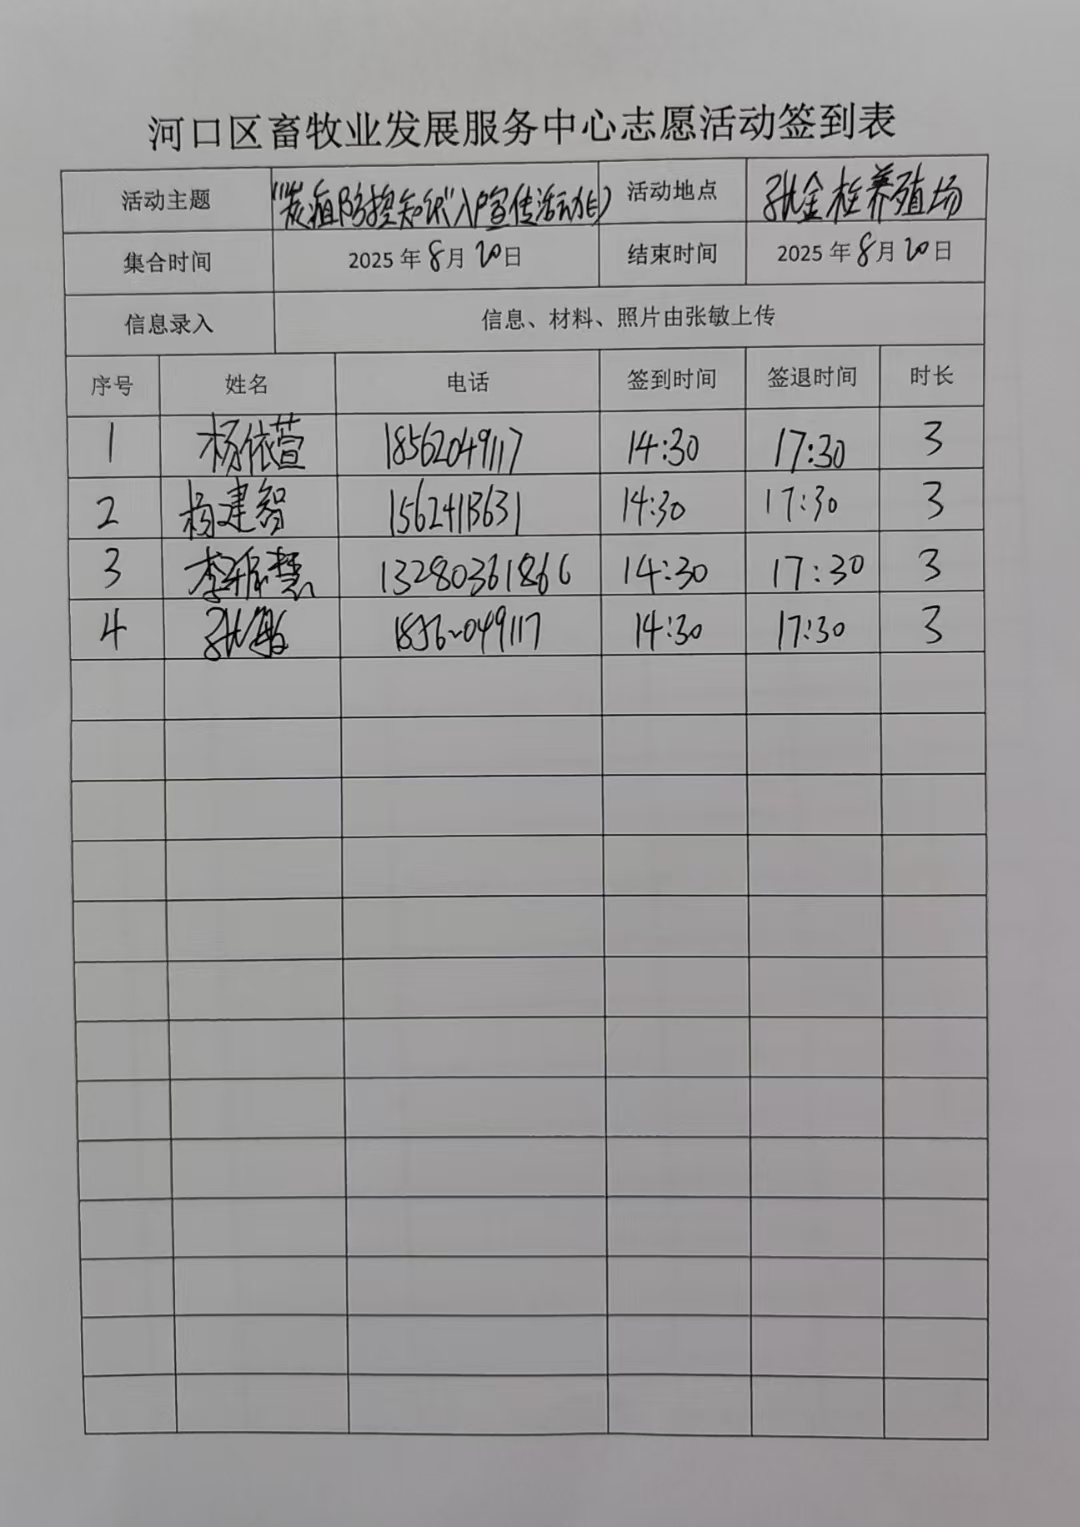 河口区畜牧业发展服务中心志愿活动签到表
活动主题 "炭疽防控知识"入户宣传活动 活动地点 张金柱养殖场
集合时间 2025年8月20日 结束时间 2025年8月20日
信息录入 信息、材料、照片由张敏上传
序号 姓名 电话 签到时间 签退时间 时长
1 杨依萱 18562049117 14:30 17:30 3
2 杨建智 15624113631 14:30 17:30 3
3 李振慧 13280361866 14:30 17:30 3
4 张敏 18562049117 14:30 17:30 3